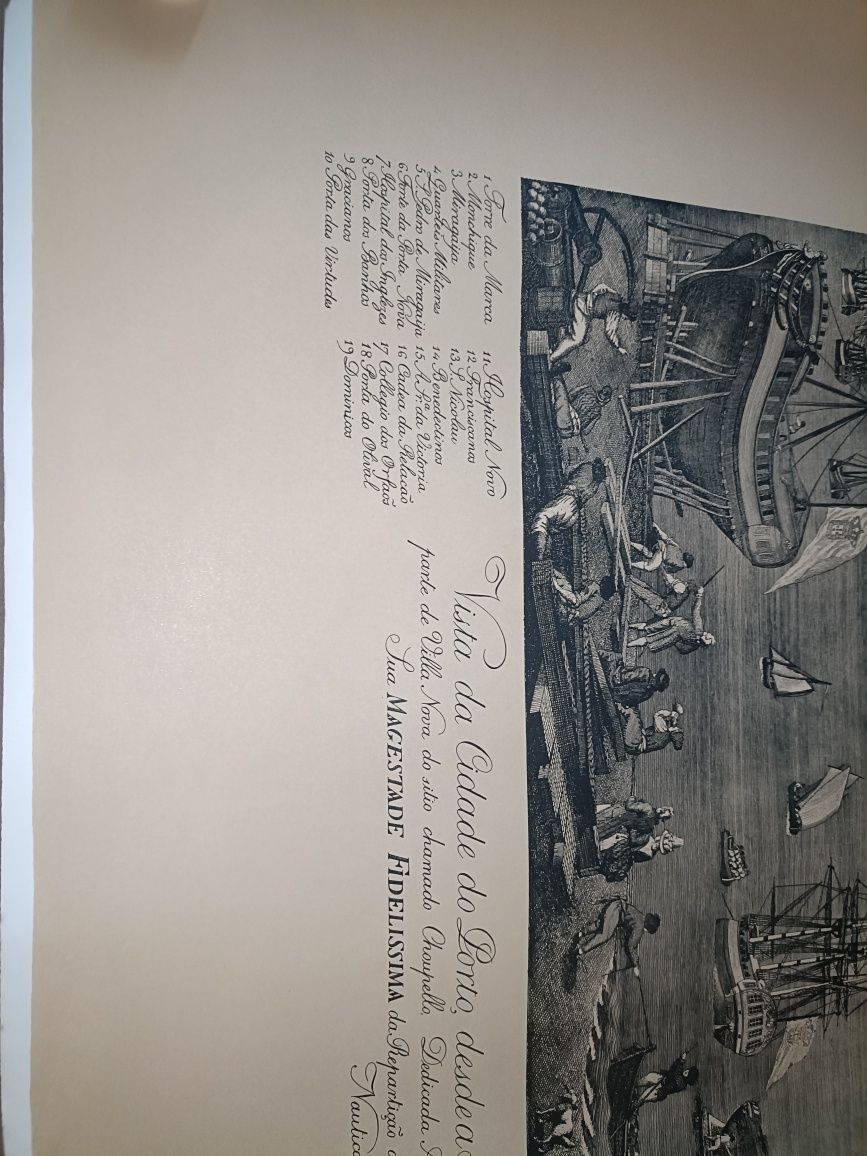 1 Torre da Marca
2 Monchique
3 Miragaija
4 Quarteis Militares
5 S. Pedro de Miragaija
6 Forte da Porta Nova
7 Hospital dos Inglezes
8 Porta dos Banhos
9 Gracianos
10 Porta das Virtudes
11 Hospital Novo
12 Franciscanos
13 S. Nicolau
14 Benedectinos
15 A Sr.ª da Victoria
16 Cadea da Relacaõ
17 Collegio dos Orfaõs
18 Porta do Olival
19 Dominicos
Vista da Cidade do Porto, desde a
parte de Villa Nova do sitio chamado Choupello, Dedicada
Sua MAGESTADE FIDELISSIMA da Repartição
Nautica